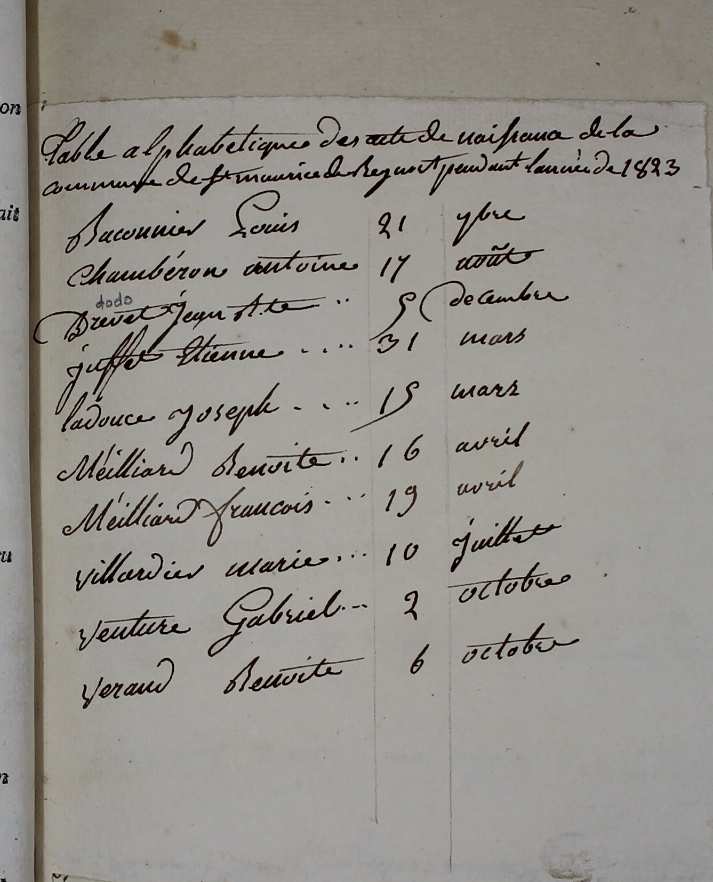 Table alphabétique des acte de naissance de la
commune de St maurice de Beynost pendant lannée de 1823
Baconnier Louis 21 9bre
Chambéron antoine 17 août
dodo
Brevet jean Bte .. 5 decembre
juffet Etienne .... 31 mars
ladouce Joseph .... 15 mars
Méilliard Benoite .. 16 avril
Méilliard francois ... 19 avril
villardier marie ... 10 juillet
venture Gabriel ... 2 octobre
veraud Benoite 6 octobre
on
ait